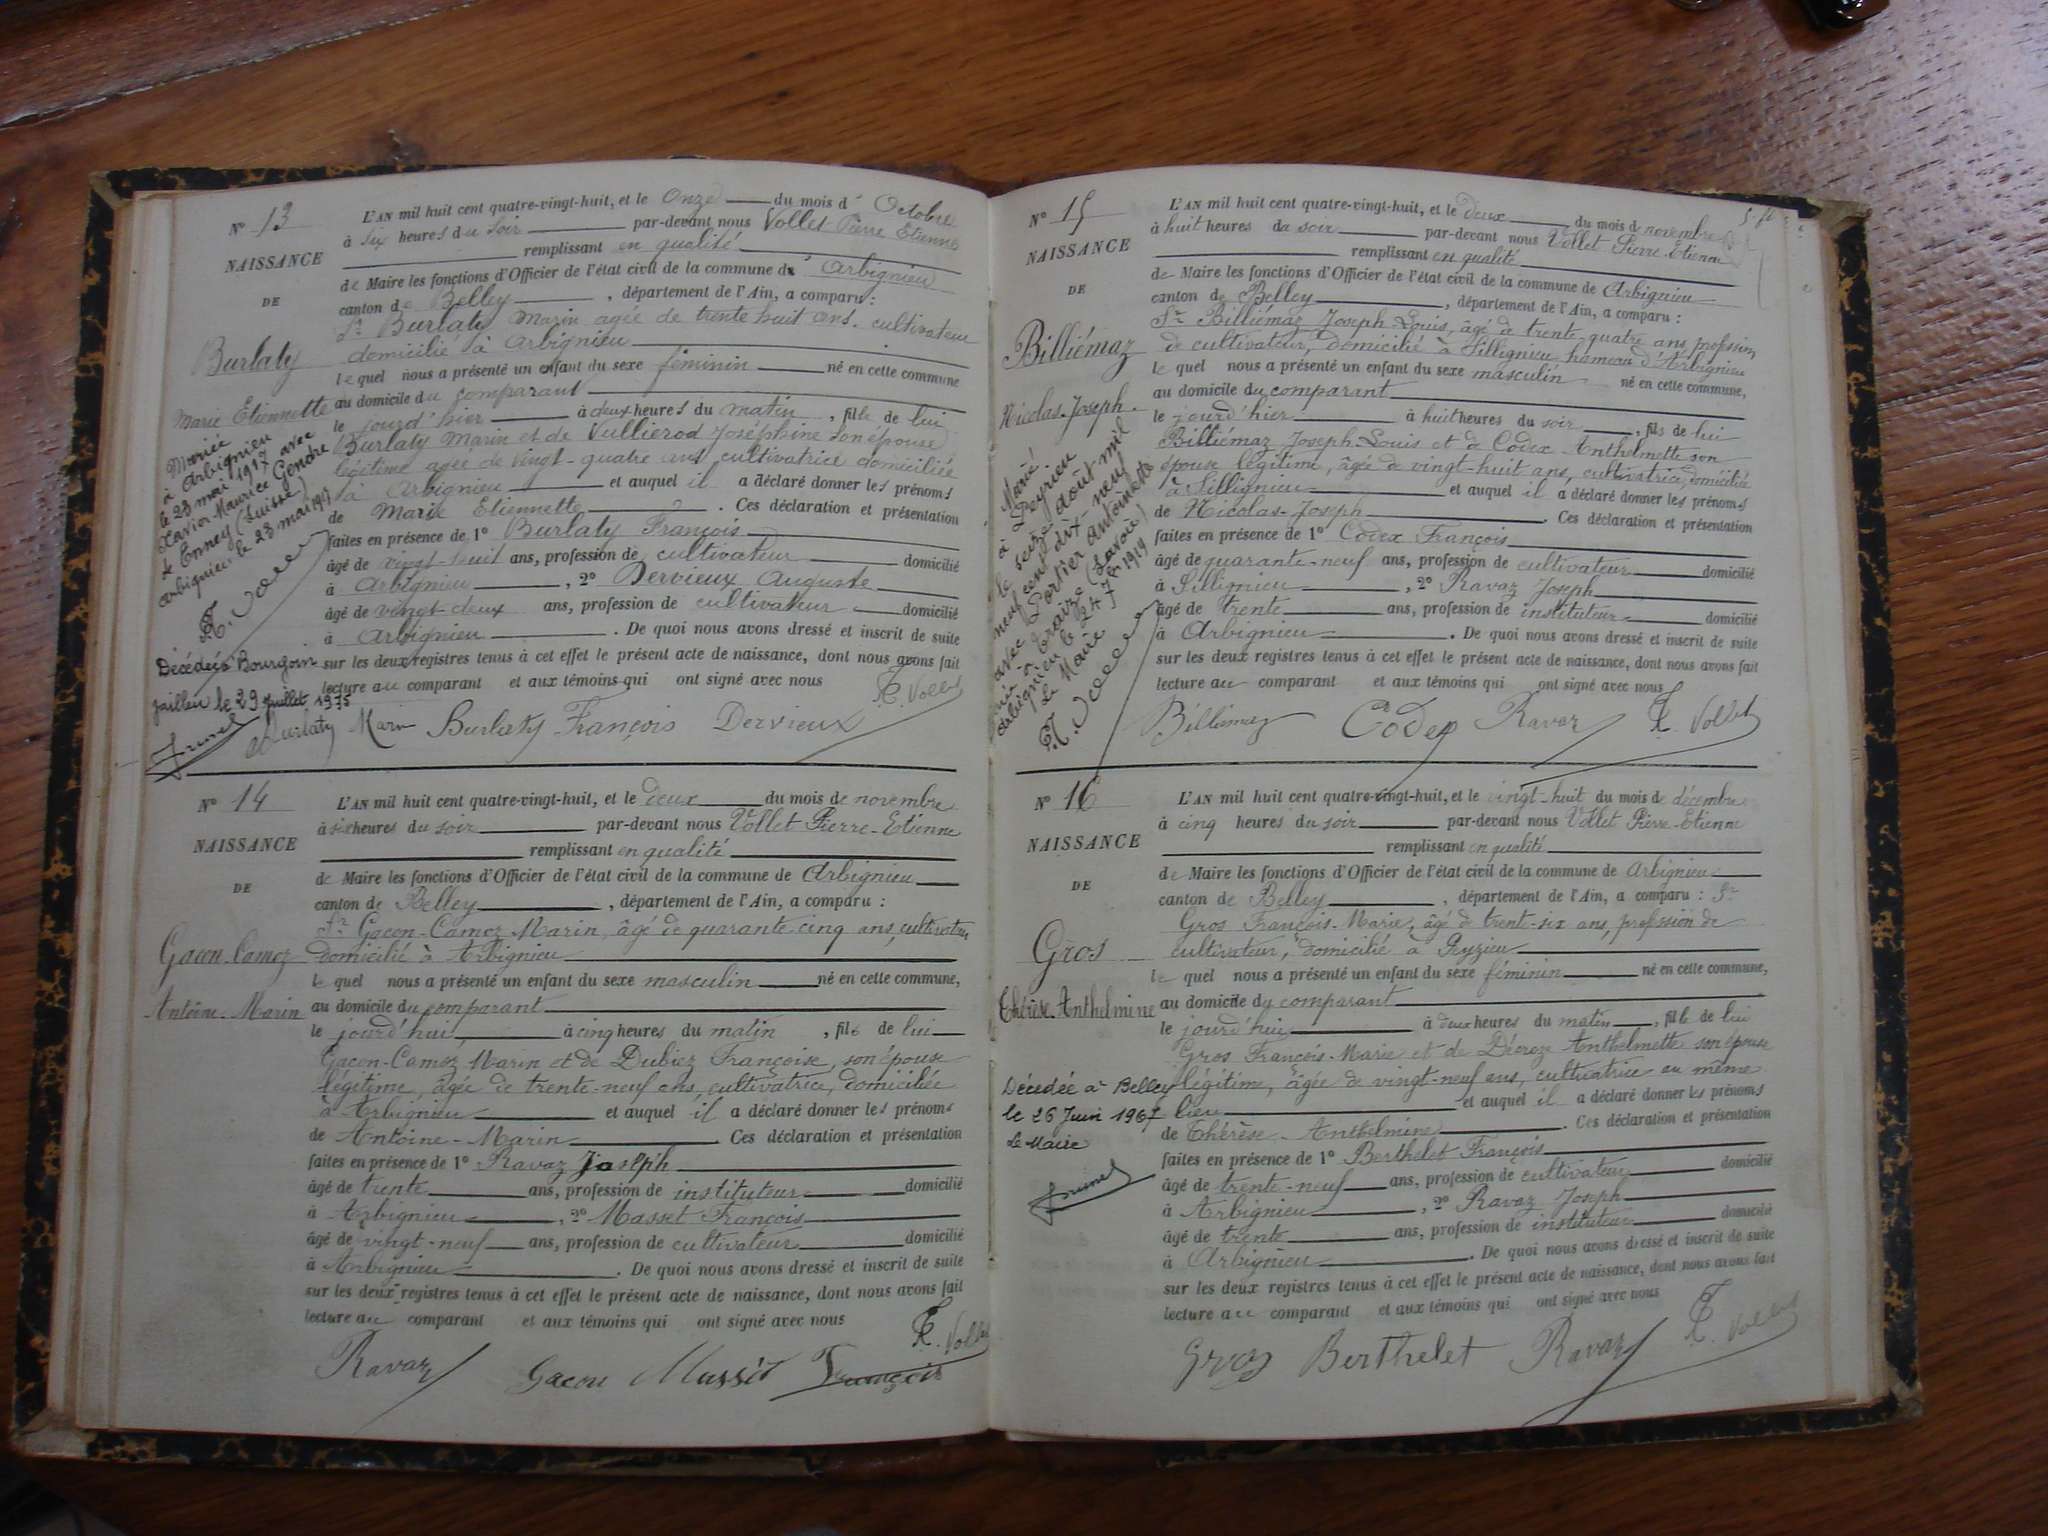 N° 13
NAISSANCE
DE
Burlaty
Marie Etiennette
Mariée
à Arbignieu
le 23 mai 1917 avec
Xavier Maurice Gendre
de Enney (Suisse)
Arbignieu le 23 mai 1917
Décédée à Bourgoin
Jallieu le 29 juillet 1975
L'AN mil huit cent quatre-vingt-huit, et le Onze du mois d' Octobre
à six heures du soir par-devant nous Vollet Pierre Etienne
remplissant en qualité
de Maire les fonctions d'Officier de l'état civil de la commune d' Arbignieu
canton de Belley , département de l'Ain, a comparu :
Sr Burlaty Marin agée de trente huit ans. cultivateur
domicilié à Arbignieu
le quel nous a présenté un enfant du sexe féminin né en cette commune
au domicile du comparant
le jourd'hier à deux heures du matin , fille de lui
Burlaty Marin et de Vullierod Joséphine son épouse
légitime agée de vingt-quatre ans cultivatrice domiciliée
à Arbignieu et auquel il a déclaré donner les prénoms
de Marie Etiennette . Ces déclaration et présentation
faites en présence de 1° Burlaty François
âgé de vingt-huit ans, profession de cultivateur domicilié
à Arbignieu , 2° Dervieux Auguste
âgé de vingt deux ans, profession de cultivateur domicilié
à Arbignieu . De quoi nous avons dressé et inscrit de suite
sur les deux registres tenus à cet effet le présent acte de naissance, dont nous avons fait
lecture au comparant et aux témoins qui ont signé avec nous
Burlaty Marin Burlaty François Dervieux Vollet
N° 14
NAISSANCE
DE
Gacon-Camoz
Antoine-Marin
L'AN mil huit cent quatre-vingt-huit, et le deux du mois de novembre
à six heures du soir par-devant nous Vollet Pierre-Etienne
remplissant en qualité
de Maire les fonctions d'Officier de l'état civil de la commune de Arbignieu
canton de Belley , département de l'Ain, a comparu :
Sr Gacon-Camoz Marin, âgé de quarante cinq ans, cultivateur
domicilié à Arbignieu
le quel nous a présenté un enfant du sexe masculin né en cette commune,
au domicile du comparant
le jourd'hui, à cinq heures du matin , fils de lui
Gacon-Camoz Marin et de Dubiez Françoise, son épouse
légitime, âgée de trente-neuf ans, cultivatrice, domiciliée
à Arbignieu et auquel il a déclaré donner les prénoms
de Antoine-Marin . Ces déclaration et présentation
faites en présence de 1° Ravaz Joseph
âgé de trente ans, profession de instituteur domicilié
à Arbignieu , 2° Masset François
âgé de vingt-neuf ans, profession de cultivateur domicilié
à Arbignieu . De quoi nous avons dressé et inscrit de suite
sur les deux registres tenus à cet effet le présent acte de naissance, dont nous avons fait
lecture au comparant et aux témoins qui ont signé avec nous
Ravaz Gacon Massét François Vollet
N° 15
NAISSANCE
DE
Billiémaz
Nicolas-Joseph
Marié
à Peyrieu
le seize août mil
neuf cent dix-neuf
avec Portier Antoinette
née à Traize (Savoie)
Arbignieu le 24 7bre 1919
Le Maire
L'AN mil huit cent quatre-vingt-huit, et le deux du mois de novembre
à huit heures du soir par-devant nous Vollet Pierre-Etienne
remplissant en qualité
de Maire les fonctions d'Officier de l'état civil de la commune de Arbignieu
canton de Belley , département de l'Ain, a comparu :
Sr Billiémaz Joseph-Louis, âgé de trente-quatre ans, profession
de cultivateur, domicilié à Sillignieu hameau d'Arbignieu
le quel nous a présenté un enfant du sexe masculin né en cette commune,
au domicile du comparant
le jourd'hier à huit heures du soir , fils de lui
Billiémaz Joseph-Louis et de Codex Anthelmette son
épouse légitime, âgée de vingt-huit ans, cultivatrice, domiciliée
à Sillignieu et auquel il a déclaré donner les prénoms
de Nicolas-Joseph . Ces déclaration et présentation
faites en présence de 1° Codex François
âgé de quarante-neuf ans, profession de cultivateur domicilié
à Sillignieu , 2° Ravaz Joseph
âgé de trente ans, profession de instituteur domicilié
à Arbignieu . De quoi nous avons dressé et inscrit de suite
sur les deux registres tenus à cet effet le présent acte de naissance, dont nous avons fait
lecture au comparant et aux témoins qui ont signé avec nous
Billiémaz Codex Ravaz Vollet
N° 16
NAISSANCE
DE
Gros
Thérèse-Anthelmine
Décédée à Belley
le 26 Juin 1967
Le Maire
L'AN mil huit cent quatre-vingt-huit, et le vingt-huit du mois de décembre
à cinq heures du soir par-devant nous Vollet Pierre-Etienne
remplissant en qualité
de Maire les fonctions d'Officier de l'état civil de la commune de Arbignieu
canton de Belley , département de l'Ain, a comparu : Sr
Gros François-Marie, âgé de trente-six ans, profession de
cultivateur, domicilié à Peyzieu
le quel nous a présenté un enfant du sexe féminin né en cette commune,
au domicile du comparant
le jourd'hui à deux heures du matin , fille de lui
Gros François-Marie et de Décroze Anthelmette son épouse
légitime, âgée de vingt-neuf ans, cultivatrice au même
lieu et auquel il a déclaré donner les prénoms
de Thérèse-Anthelmine . Ces déclaration et présentation
faites en présence de 1° Berthelet François
âgé de trente-neuf ans, profession de cultivateur domicilié
à Arbignieu , 2° Ravaz Joseph
âgé de trente ans, profession de instituteur domicilié
à Arbignieu . De quoi nous avons dressé et inscrit de suite
sur les deux registres tenus à cet effet le présent acte de naissance, dont nous avons fait
lecture au comparant et aux témoins qui ont signé avec nous
Gros Berthelet Ravaz Vollet